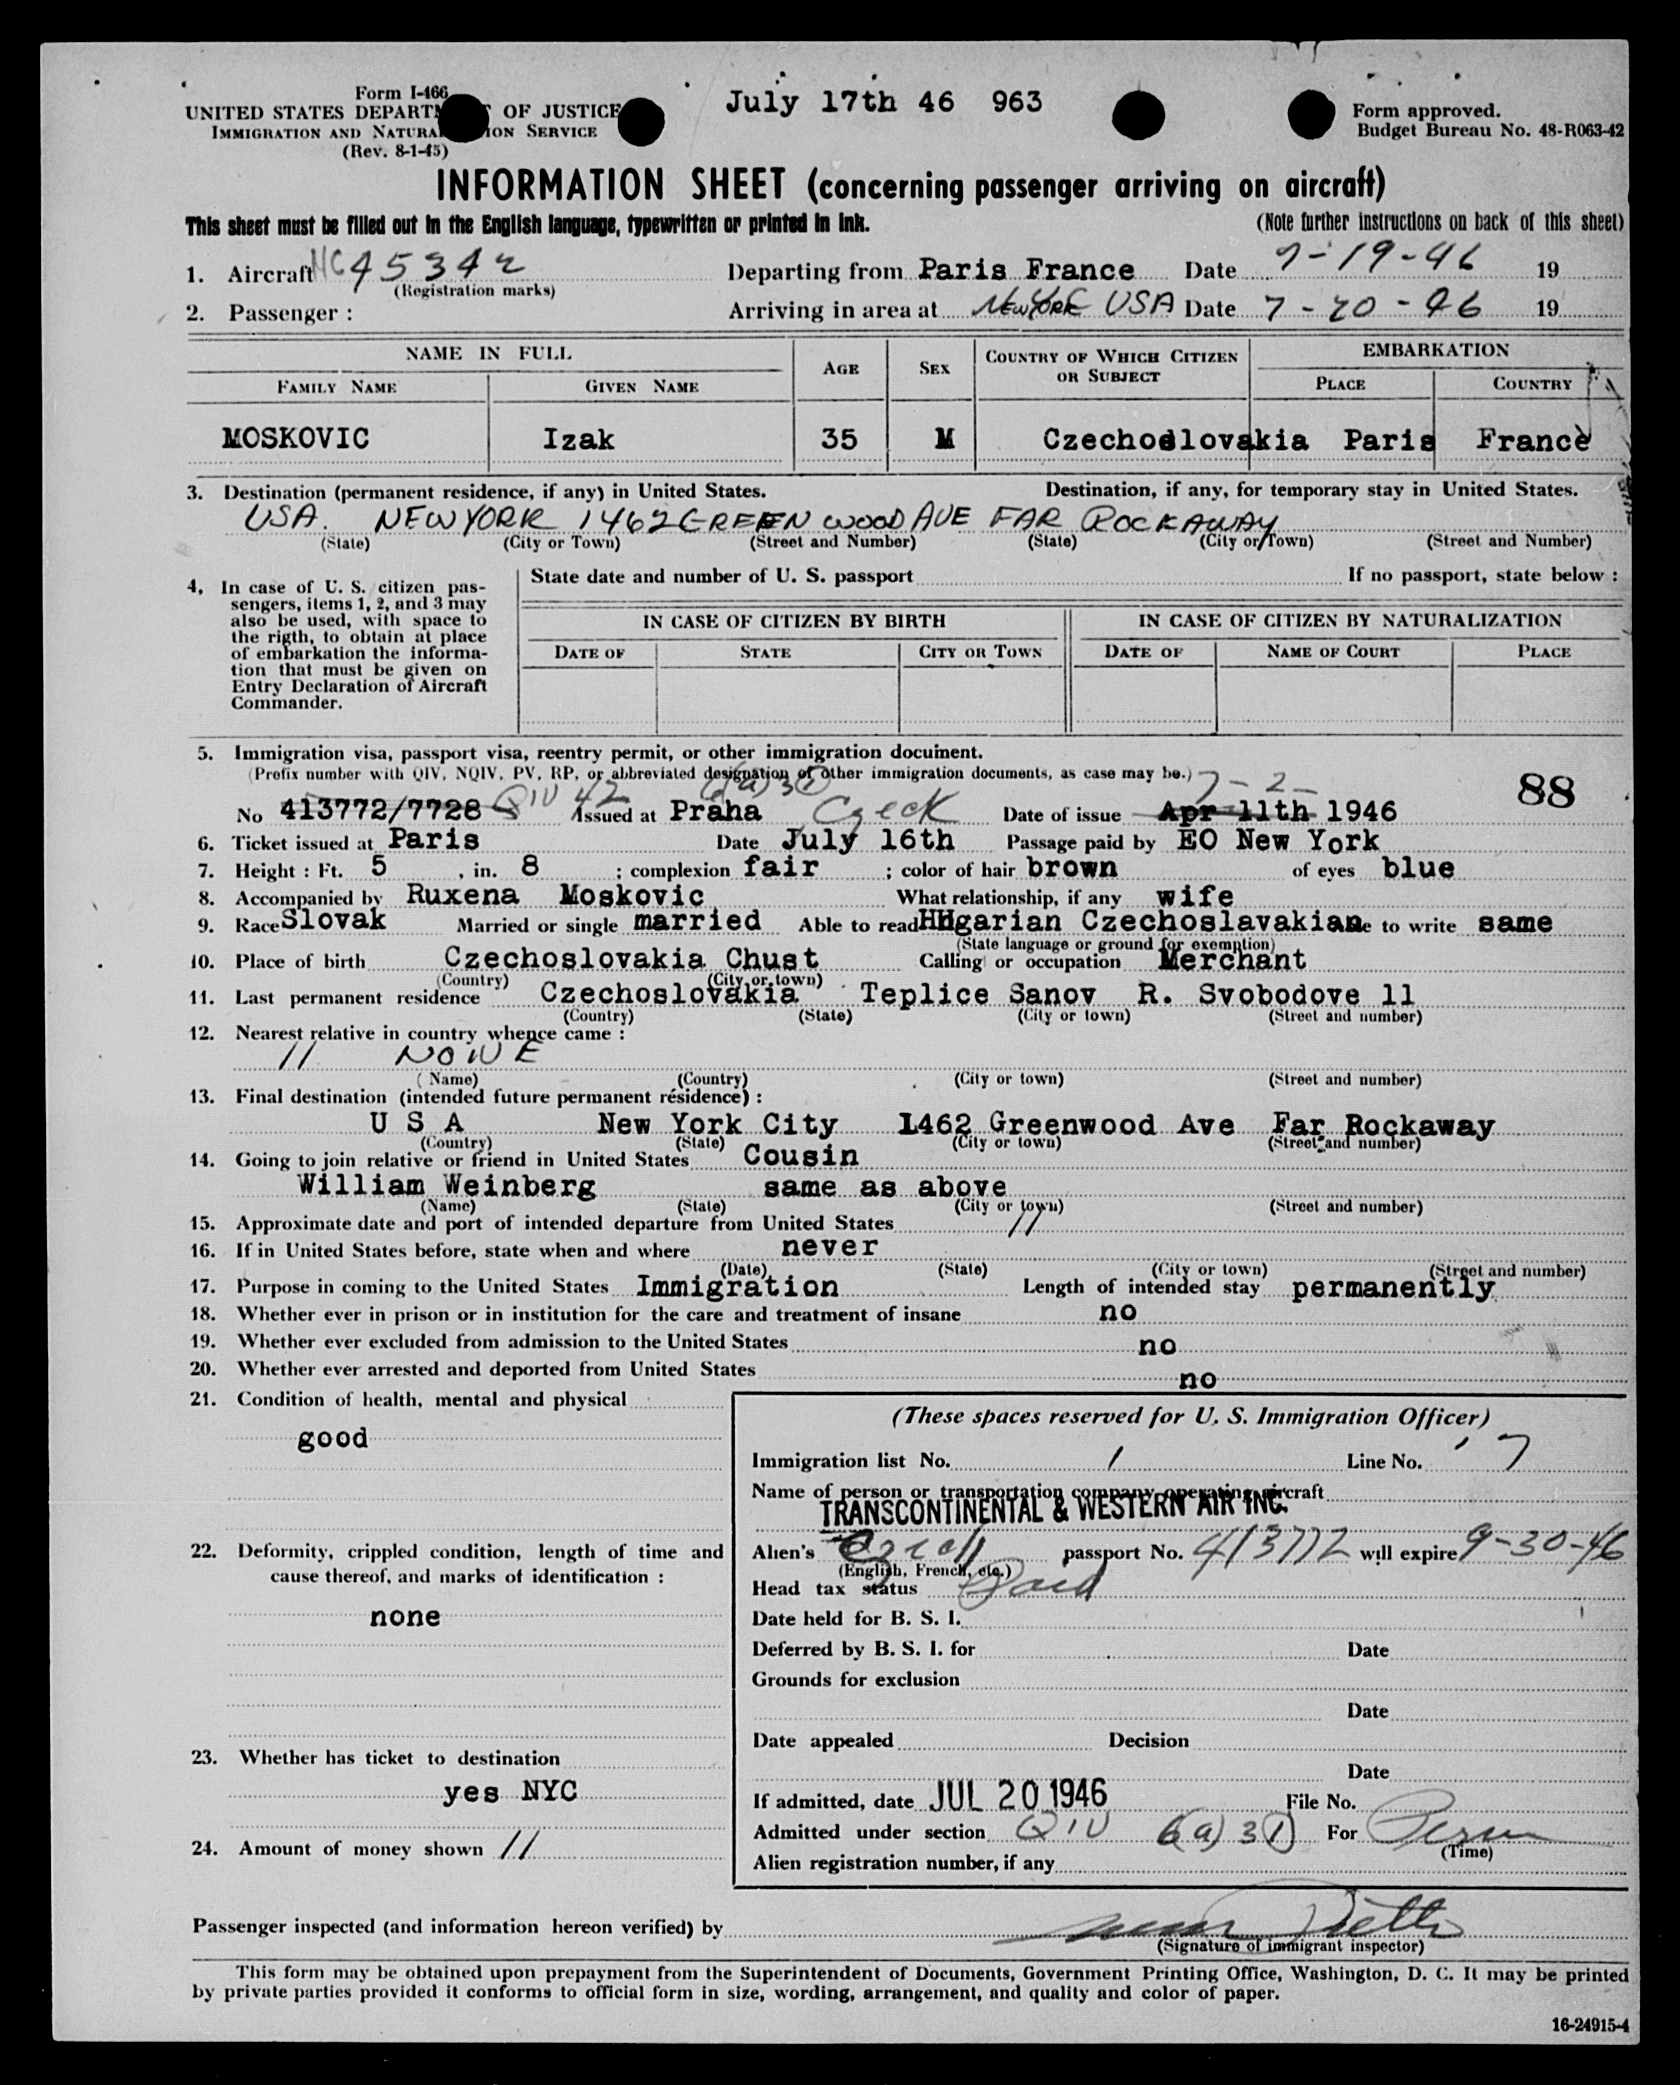 Form I-466
UNITED STATES DEPARTM OF JUSTICE
IMMIGRATION AND NATURA ION SERVICE
(Rev. 8-1-45)
July 17th 46 963
Form approved.
Budget Bureau No. 48-R063-42
INFORMATION SHEET (concerning passenger arriving on aircraft)
This sheet must be filled out in the English language, typewritten or printed in ink. (Note further instructions on back of this sheet)
1. Aircraft NC 45342 Departing from Paris France Date 7-19-46 19
(Registration marks)
2. Passenger : Arriving in area at NEWYORK USA Date 7-20-46 19
NAME IN FULL AGE SEX COUNTRY OF WHICH CITIZEN OR SUBJECT EMBARKATION
FAMILY NAME GIVEN NAME PLACE COUNTRY
MOSKOVIC Izak 35 M Czechoslovakia Paris France
3. Destination (permanent residence, if any) in United States. Destination, if any, for temporary stay in United States.
USA. NEWYORK 1462 GREENWOOD AVE FAR ROCKAWAY
(State) (City or Town) (Street and Number) (State) (City or Town) (Street and Number)
4, In case of U. S. citizen pas-
sengers, items 1, 2, and 3 may
also be used, with space to
the rigth, to obtain at place
of embarkation the informa-
tion that must be given on
Entry Declaration of Aircraft
Commander.
State date and number of U. S. passport If no passport, state below :
IN CASE OF CITIZEN BY BIRTH IN CASE OF CITIZEN BY NATURALIZATION
DATE OF STATE CITY OR TOWN DATE OF NAME OF COURT PLACE
5. Immigration visa, passport visa, reentry permit, or other immigration document.
(Prefix number with QIV, NQIV, PV, RP, or abbreviated designation of other immigration documents, as case may be.)
6(a)3(1) 7-2- 88
No 413772/7728 QIV 42 Issued at Praha Czeck Date of issue Apr 11th 1946
6. Ticket issued at Paris Date July 16th Passage paid by EO New York
7. Height : Ft. 5 , in. 8 ; complexion fair ; color of hair brown of eyes blue
8. Accompanied by Ruxena Moskovic What relationship, if any wife
9. Race Slovak Married or single married Able to read HUgarian Czechoslavakian e to write same
(State language or ground for exemption)
10. Place of birth Czechoslovakia Chust Calling or occupation Merchant
(Country) (City or town)
11. Last permanent residence Czechoslovakia Teplice Sanov R. Svobodove 11
(Country) (State) (City or town) (Street and number)
12. Nearest relative in country whence came :
// NONE
(Name) (Country) (City or town) (Street and number)
13. Final destination (intended future permanent résidence) :
U S A New York City 1462 Greenwood Ave Far Rockaway
(Country) (State) (City or town) (Street and number)
14. Going to join relative or friend in United States Cousin
William Weinberg same as above
(Name) (State) (City or town) (Street and number)
15. Approximate date and port of intended departure from United States //
16. If in United States before, state when and where never
(Date) (State) (City or town) (Street and number)
17. Purpose in coming to the United States Immigration Length of intended stay permanently
18. Whether ever in prison or in institution for the care and treatment of insane no
19. Whether ever excluded from admission to the United States no
20. Whether ever arrested and deported from United States no
21. Condition of health, mental and physical
good
22. Deformity, crippled condition, length of time and
cause thereof, and marks of identification :
none
23. Whether has ticket to destination
yes NYC
24. Amount of money shown //
(These spaces reserved for U. S. Immigration Officer)
Immigration list No. 1 Line No. 7
Name of person or transportation company operating aircraft
TRANSCONTINENTAL & WESTERN AIR INC.
Alien's Czech passport No. 413772 will expire 9-30-46
(English, French, etc.)
Head tax status Paid
Date held for B. S. I.
Deferred by B. S. I. for Date
Grounds for exclusion
Date
Date appealed Decision
Date
If admitted, date JUL 20 1946 File No.
Admitted under section QIV 6(a)3(1) For Perm
(Time)
Alien registration number, if any
Passenger inspected (and information hereon verified) by
(Signature of immigrant inspector)
This form may be obtained upon prepayment from the Superintendent of Documents, Government Printing Office, Washington, D. C. It may be printed
by private parties provided it conforms to official form in size, wording, arrangement, and quality and color of paper.
16-24915-4